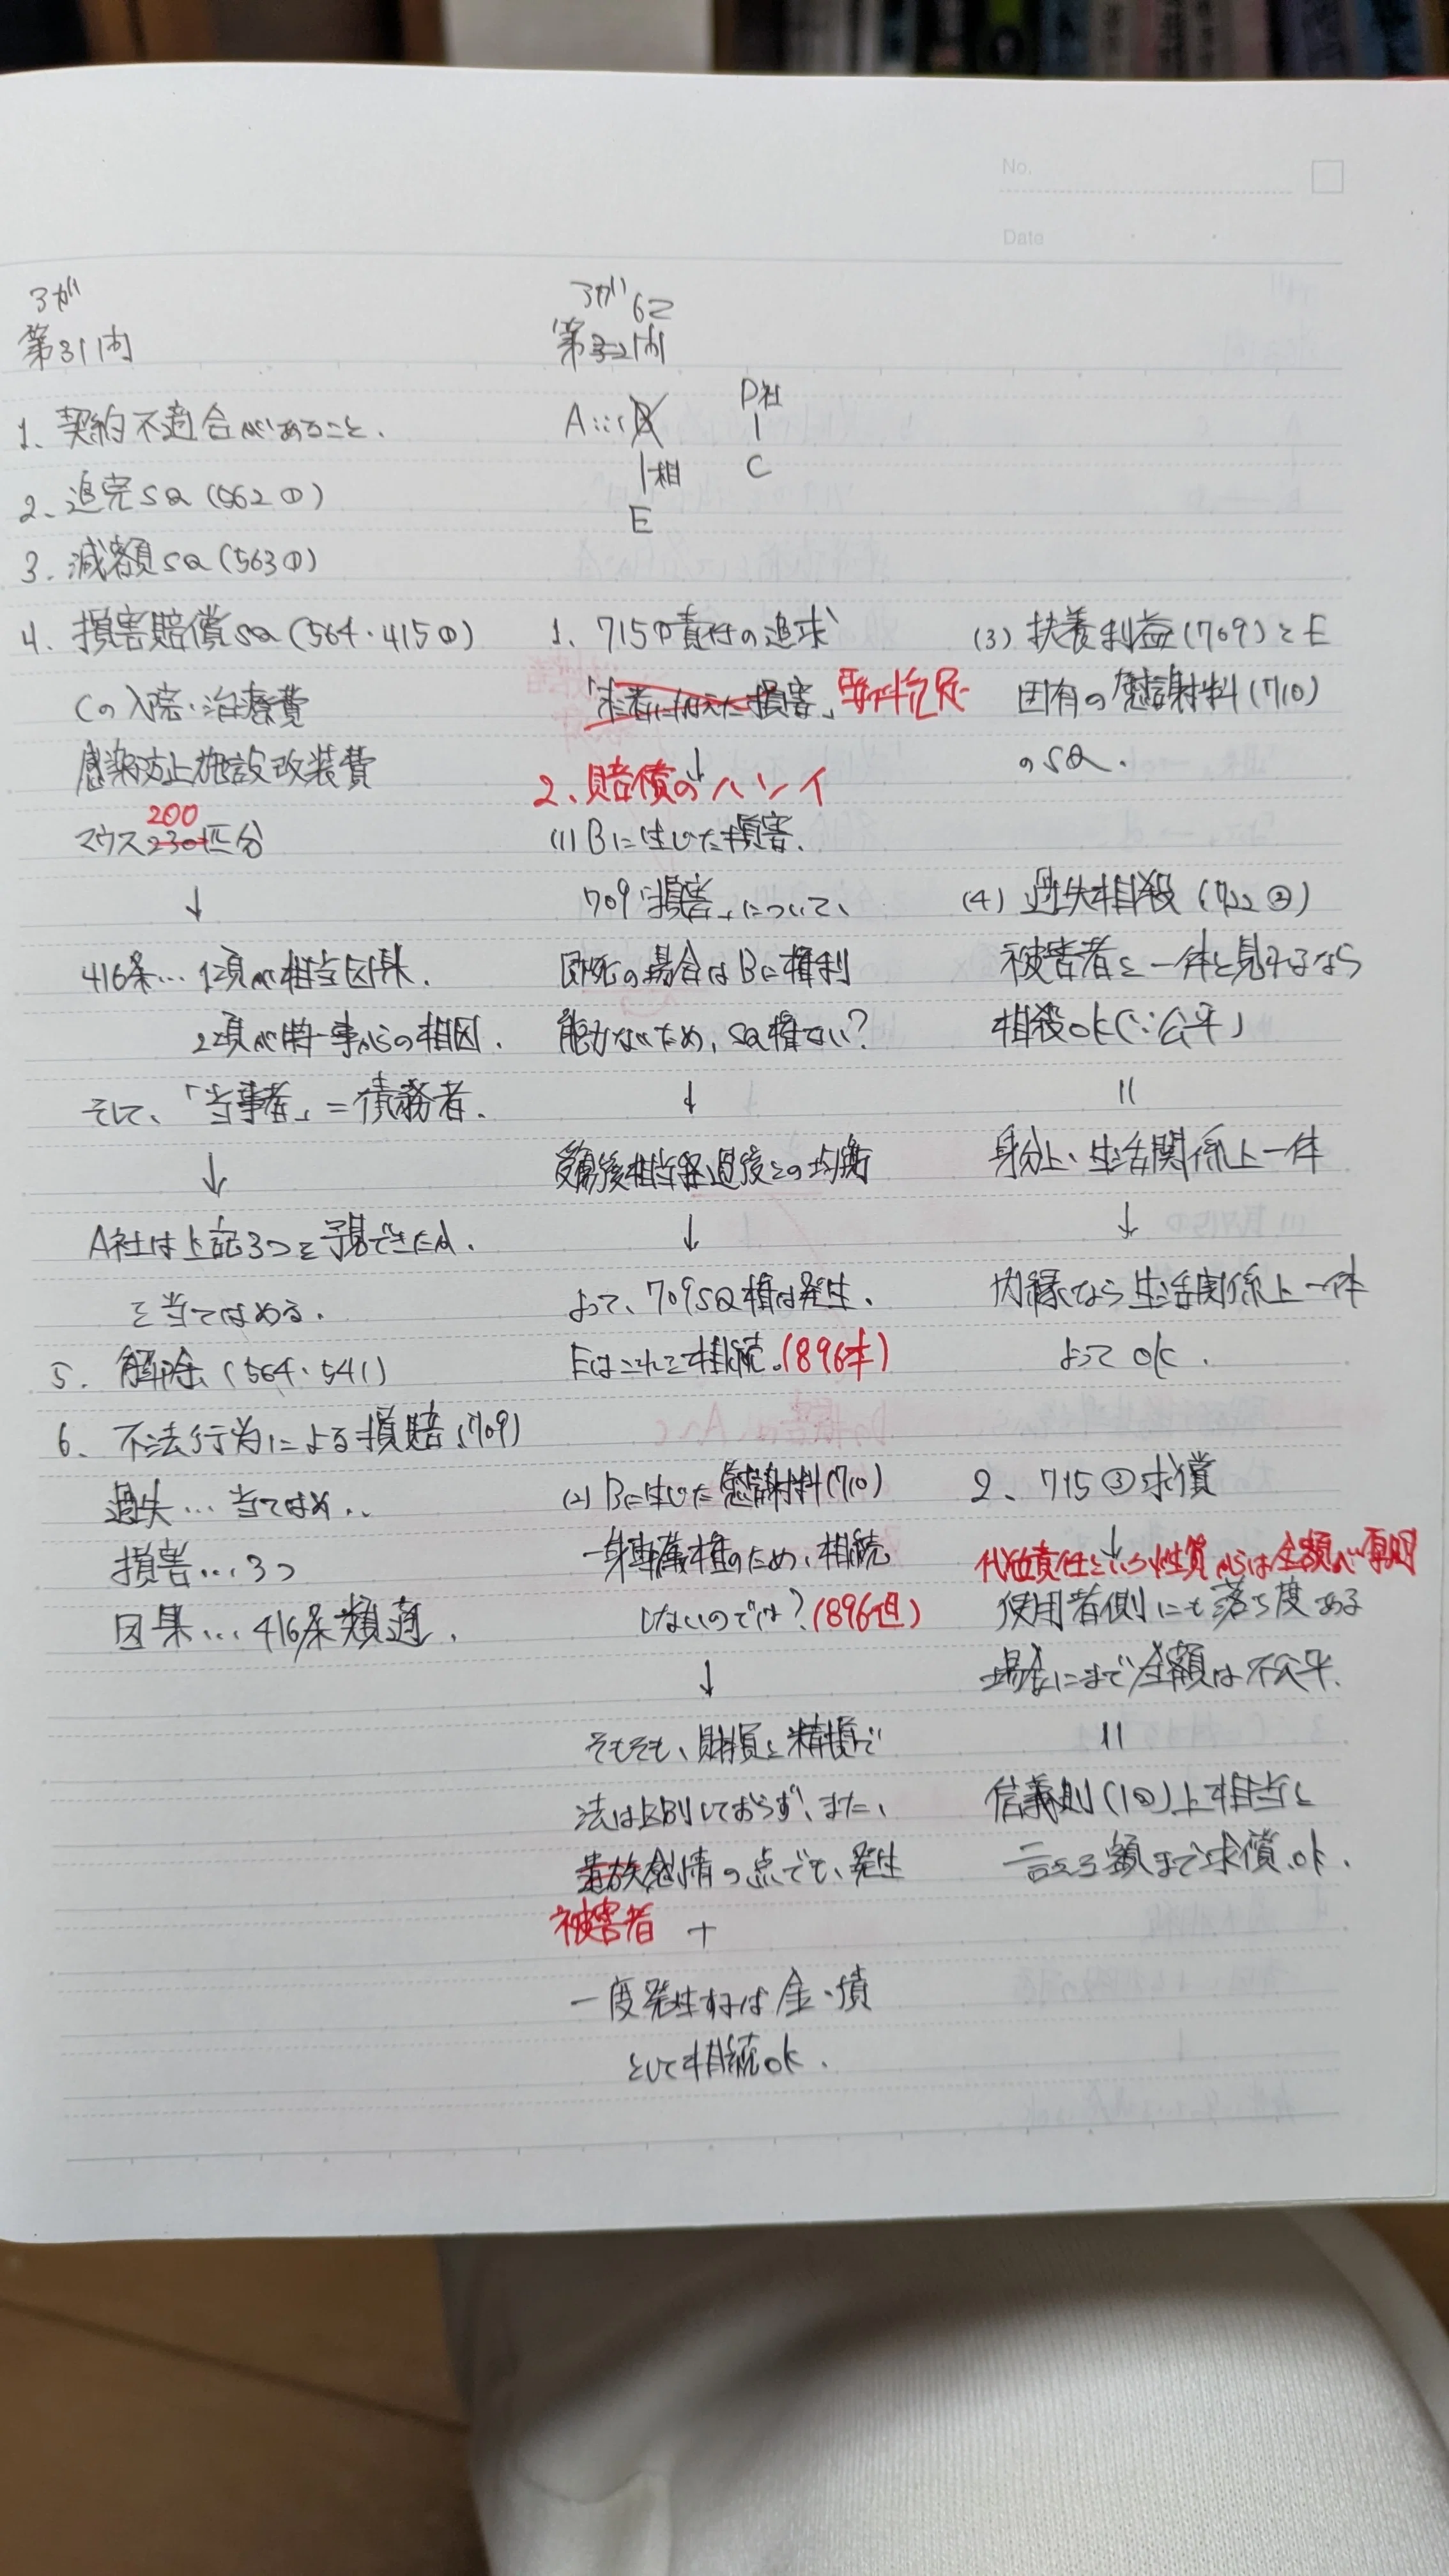 No.
Date
3が
第31問
1、契約不適合があること、
2、追完SQ(562①)
3、減額SQ(563①)
4、損害賠償SQ(564・415①)
Cの入院・治療費
感染防止施設改装費
200
マウス230匹分
↓
416条…1項が相当因果、
2項が特事からの相因、
そして、「当事者」=債務者、
↓
A社は上記3つを予見できたか、
を当てはめる、
5、解除(564・541)
6、不法行為による損賠(709)
過失…当てはめ、、
損害…3つ
因果…416条類適、
3が62
第32問
A…B
D社
|相
C
E
1、715①責任の追求
「第三者に加えた損害」要件充足
↓
2、賠償のハンイ
(1)Bに生じた損害、
709「損害」について、
即死の場合はBに権利
能力ないため、SQ権ない?
↓
受傷後相当経過後との均衡
↓
よって、709SQ権は発生、
Eはこれを相続。(896本)
(2)Bに生じた慰謝料(710)
一身専属権のため、相続
しないのでは?(896但)
↓
そもそも、財損と精損で
法は区別しておらず、また、
遺族感情の点でも、発生
被害者 +
一度発生すれば金・債
として相続ok、
(3)扶養利益(709)とE
固有の慰謝料(710)
のSQ、
(4)過失相殺(722②)
被害者と一体と見れるなら
相殺ok(∵公平)
||
身分上、生活関係上一体
↓
内縁なら生活関係上一体
よってok、
2、715③求償
↓
代位責任という性質からは全額が原則
使用者側にも落ち度ある
場合にまで全額は不公平、
||
信義則(1②)上相当と
言える額まで求償ok、